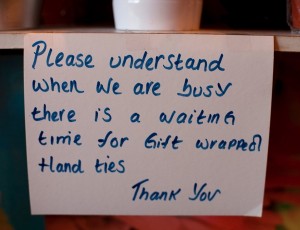 Please understand
when we are busy
there is a waiting
time for Gift wrapped
Hand ties
Thank You